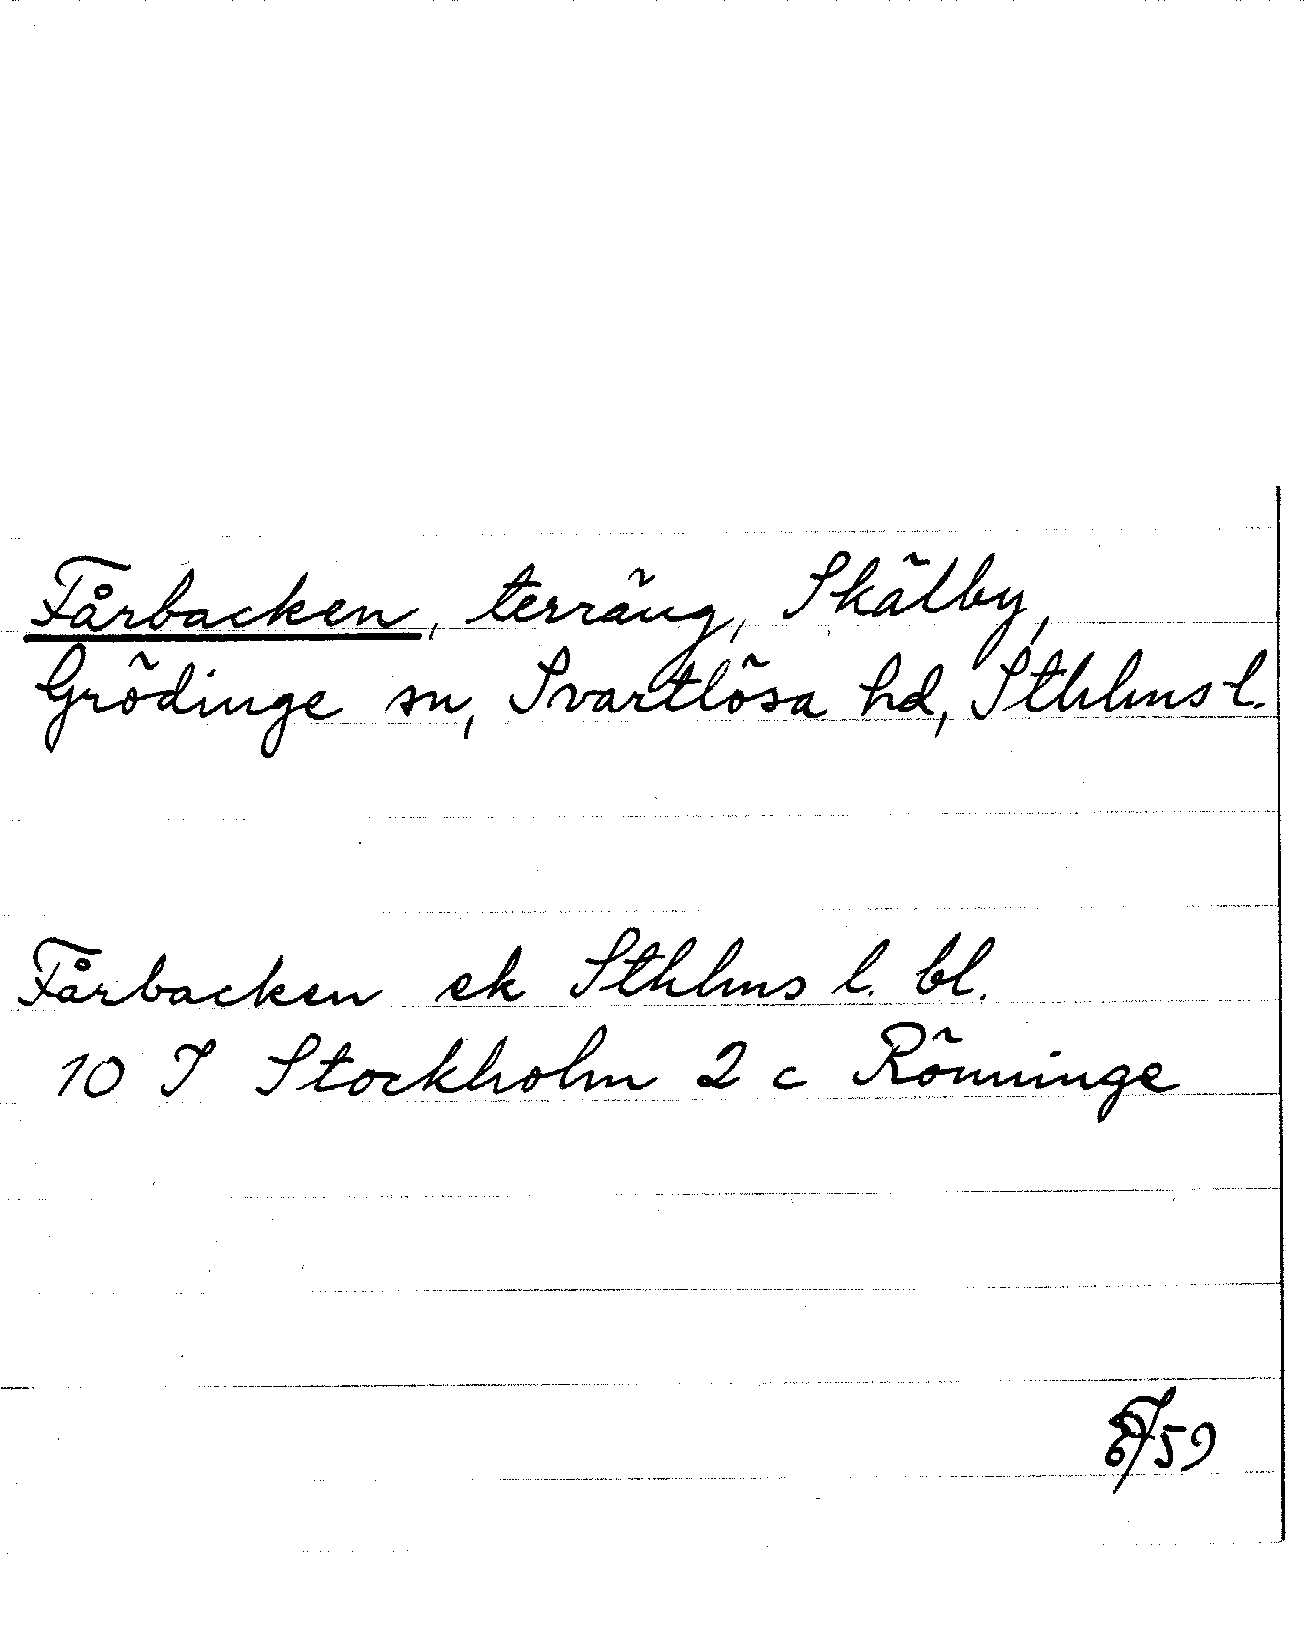 Fårbacken, terräng, Skälby,
Grödinge sn, Svartlösa hd, Sthlms l.
Fårbacken ek Sthlms l. bl.
10 I Stockholm 2 c Rönninge
59